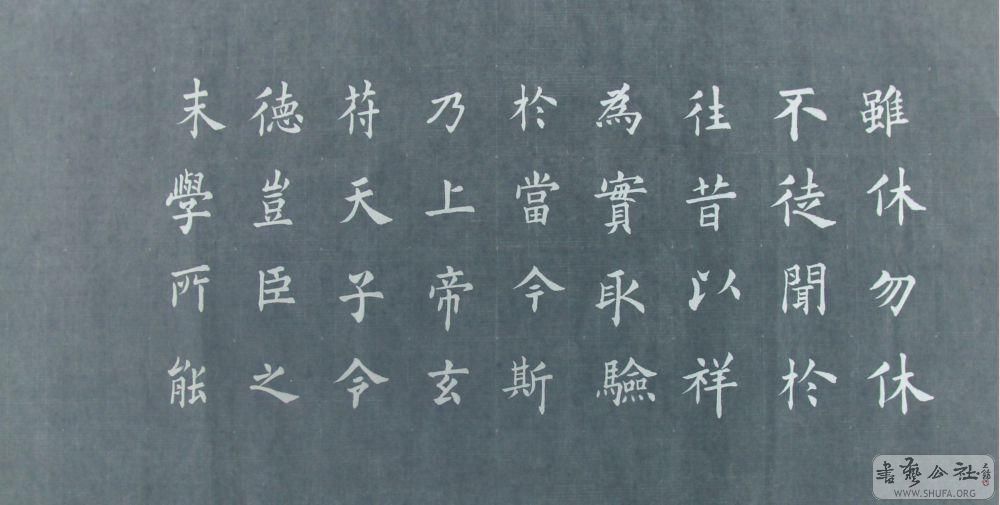 雖休勿休
不徒聞於
往昔以祥
為實取驗
於當今斯
乃上帝玄
苻天子令
德豈臣之
末學所能
書藝公社
WWW.SHUFA.ORG